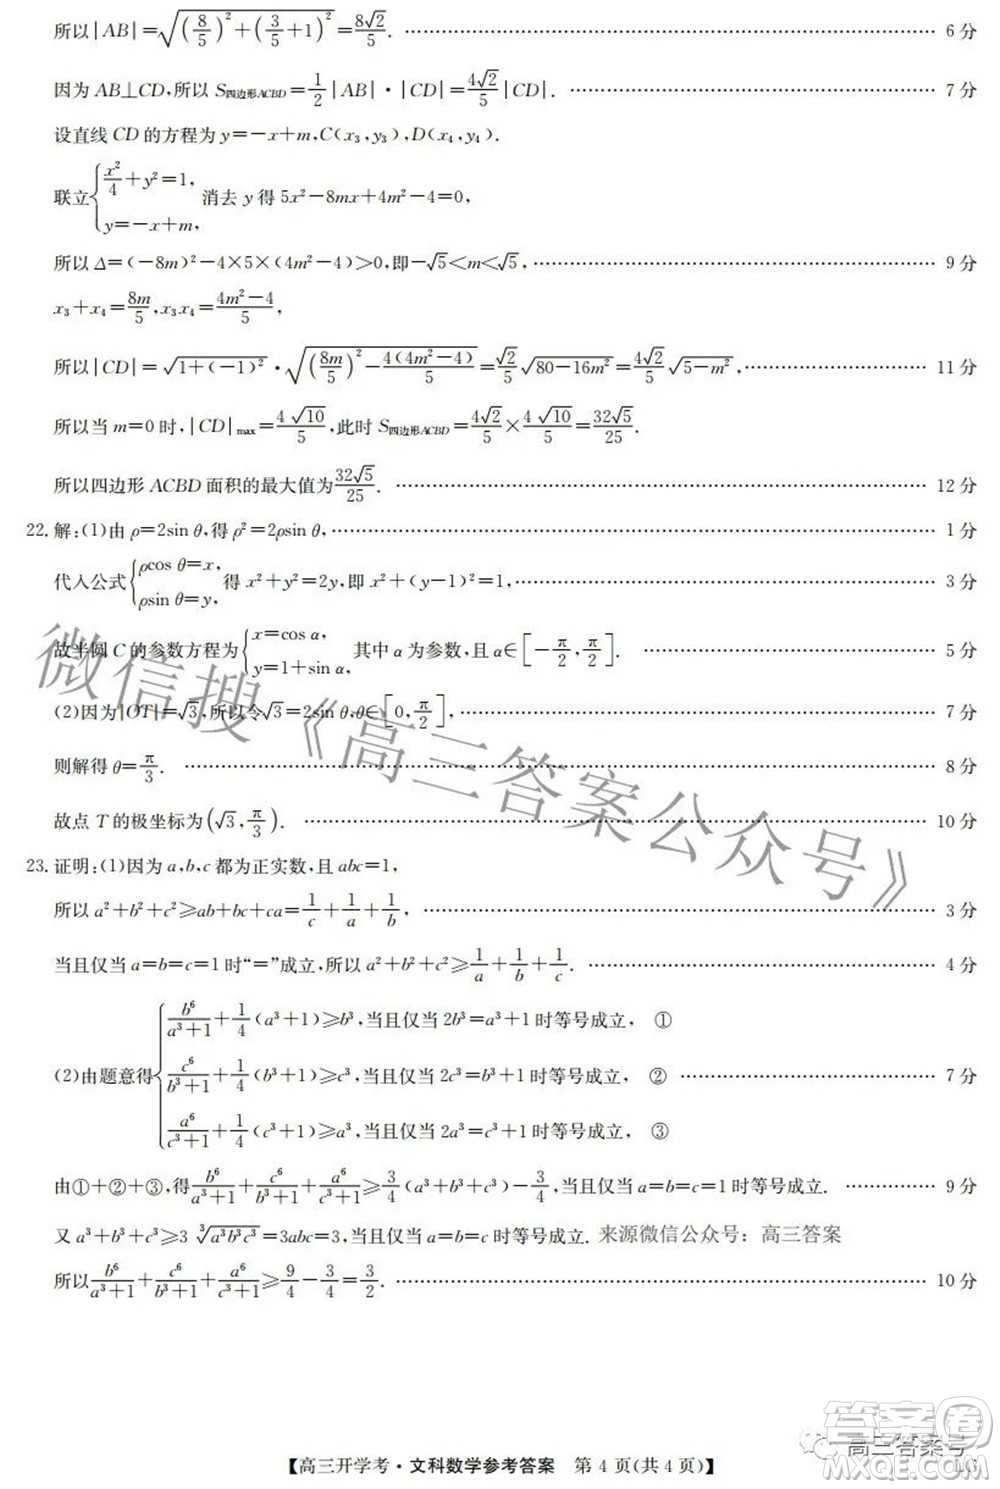 所以|AB|=√((8/5)²+(3/5+1)²)=8√2/5. …… 6 分
因为 AB⊥CD,所以 S四边形ACBD=1/2|AB|·|CD|=4√2/5|CD|. …… 7 分
设直线 CD 的方程为 y=-x+m,C(x₃,y₃),D(x₄,y₄).
联立{x²/4+y²=1, y=-x+m, 消去 y 得 5x²-8mx+4m²-4=0,
所以 Δ=(-8m)²-4×5×(4m²-4)>0,即-√5<m<√5, …… 9 分
x₃+x₄=8m/5,x₃x₄=(4m²-4)/5,
所以|CD|=√(1+(-1)²)·√((8m/5)²-4(4m²-4)/5)=√2/5√(80-16m²)=4√2/5√(5-m²), …… 11 分
所以当 m=0 时,|CD|max=4√10/5,此时 S四边形ACBD=4√2/5×4√10/5=32√5/25.
所以四边形 ACBD 面积的最大值为32√5/25. …… 12 分
22.解:(1)由 ρ=2sin θ,得 ρ²=2ρsin θ, …… 1 分
代入公式{ρcos θ=x, ρsin θ=y, 得 x²+y²=2y,即 x²+(y-1)²=1, …… 3 分
故半圆 C 的参数方程为{x=cos α, y=1+sin α, 其中 α 为参数,且 α∈[-π/2,π/2]. …… 5 分
(2)因为|OT|=√3,所以令√3=2sin θ,θ∈[0,π/2], …… 7 分
则解得 θ=π/3. …… 8 分
故点 T 的极坐标为(√3,π/3). …… 10 分
23.证明:(1)因为 a,b,c 都为正实数,且 abc=1,
所以 a²+b²+c²≥ab+bc+ca=1/c+1/a+1/b, …… 3 分
当且仅当 a=b=c=1 时“=”成立,所以 a²+b²+c²≥1/a+1/b+1/c. …… 4 分
(2)由题意得{b⁶/(a³+1)+1/4(a³+1)≥b³,当且仅当 2b³=a³+1 时等号成立, ①
c⁶/(b³+1)+1/4(b³+1)≥c³,当且仅当 2c³=b³+1 时等号成立, ② …… 7 分
a⁶/(c³+1)+1/4(c³+1)≥a³,当且仅当 2a³=c³+1 时等号成立, ③
由①+②+③,得b⁶/(a³+1)+c⁶/(b³+1)+a⁶/(c³+1)≥3/4(a³+b³+c³)-3/4,当且仅当 a=b=c=1 时等号成立. …… 9 分
又 a³+b³+c³≥3∛(a³b³c³)=3abc=3,当且仅当 a=b=c 时等号成立. 来源微信公众号：高三答案
所以b⁶/(a³+1)+c⁶/(b³+1)+a⁶/(c³+1)≥9/4-3/4=3/2. …… 10 分
微信搜《高三答案公众号》
答案圈
高三答案号
【高三开学考·文科数学参考答案 第 4 页(共 4 页)】 LG
MXQE.COM